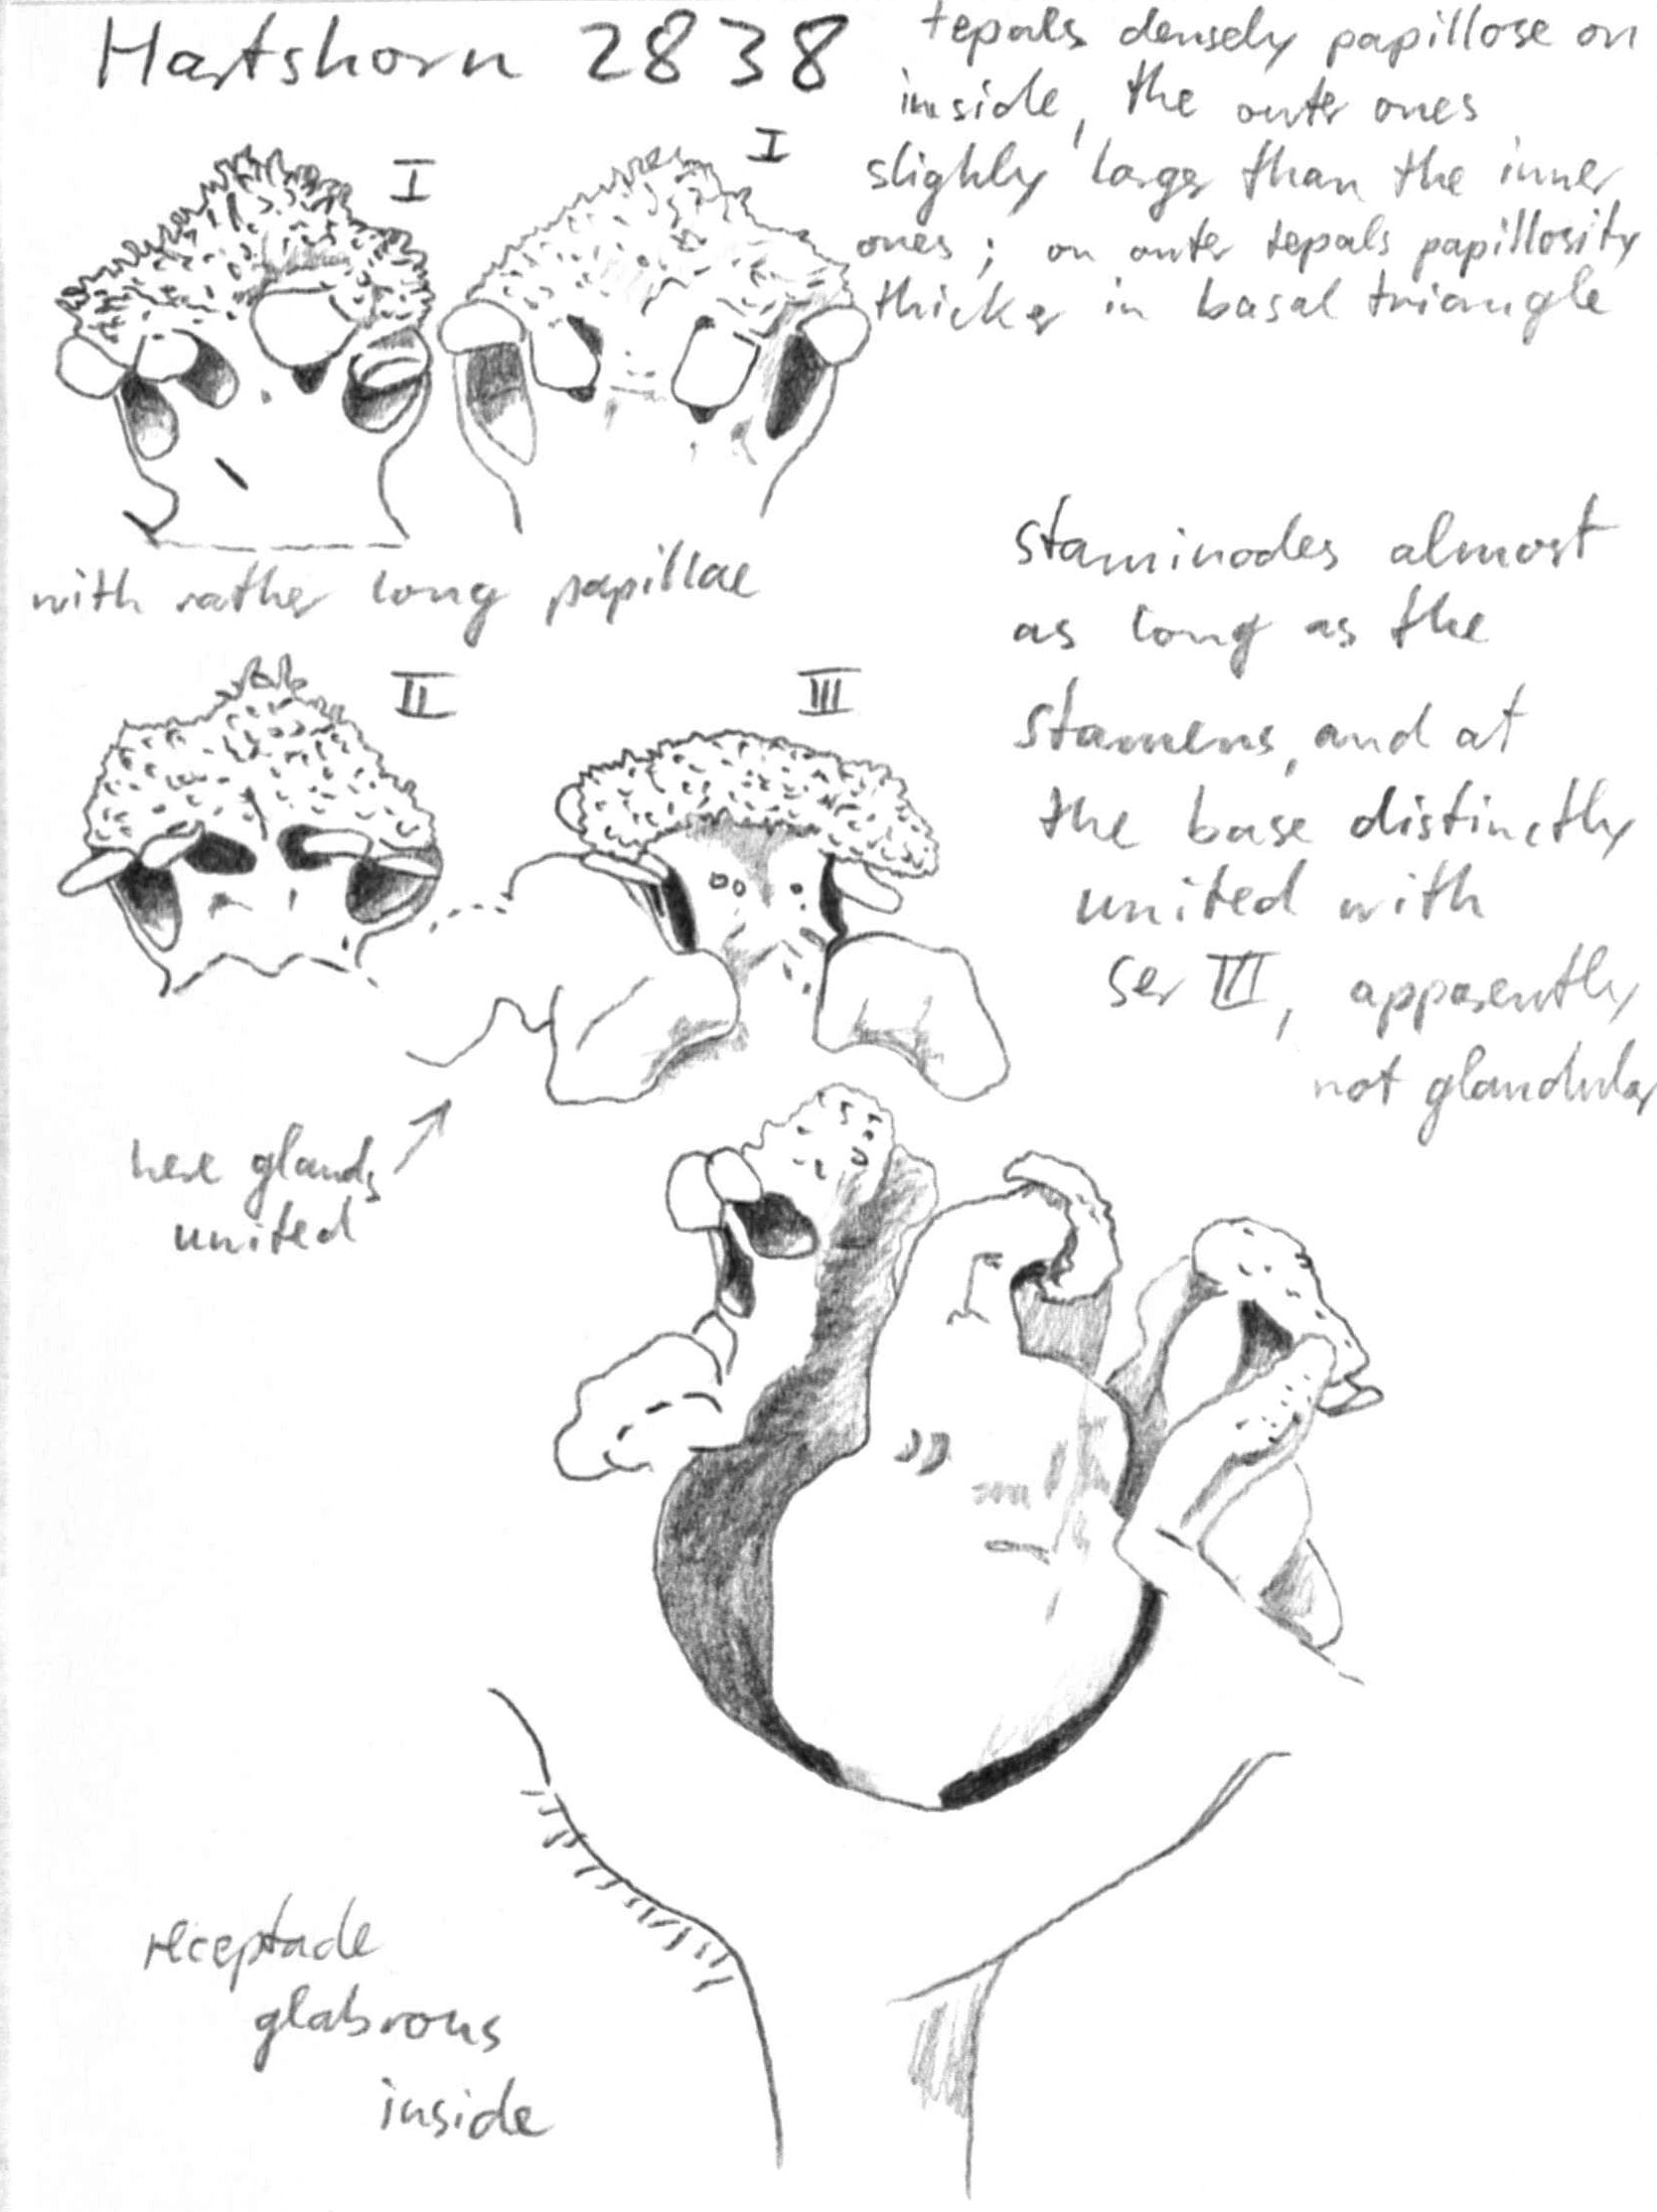 Hartshorn 2838
tepals densely papillose on
inside, the outer ones
slightly larger than the inner
ones; on outer tepals papillosity
thicker in basal triangle
I
I
with rather long papillae
staminodes almost
as long as the
stamens, and at
the base distinctly
united with
ser III, apparently
not glandular
II
III
here glands
united
receptacle
glabrous
inside